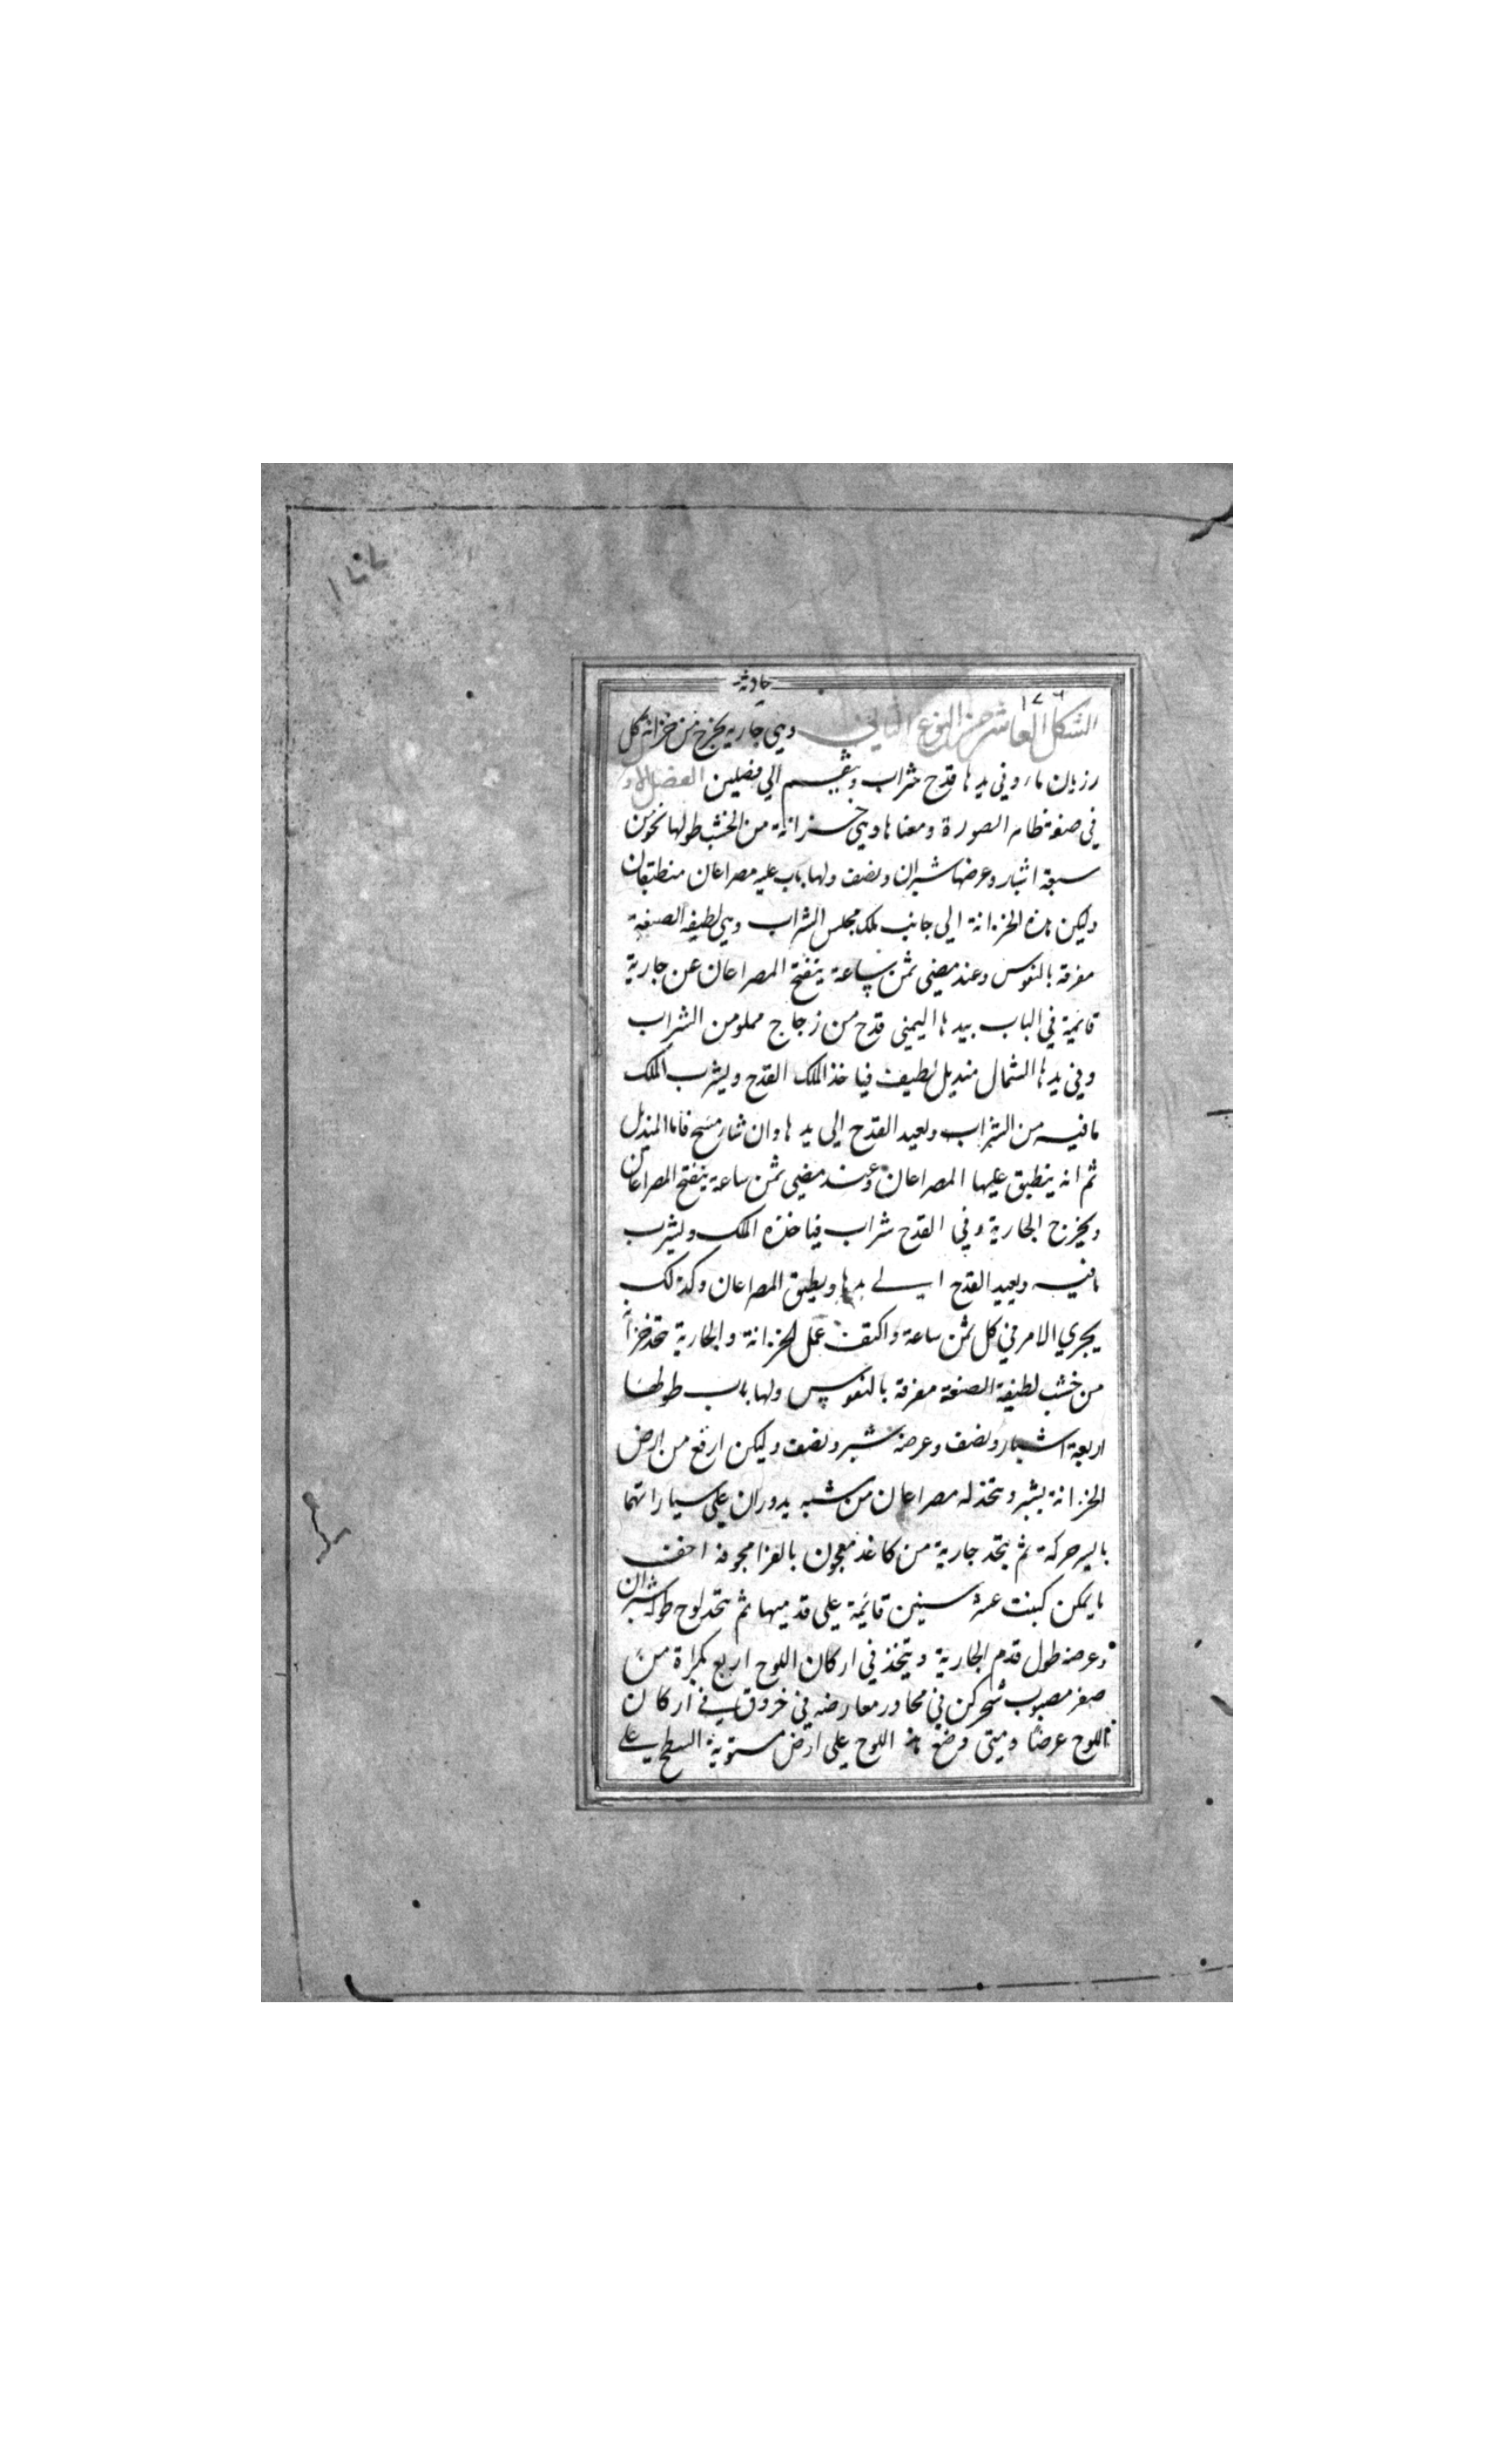 ١٧٧
حادثة
١٧٦
الشكل العاشر من النوع الثاني وهي جارية تخرج من خزانة كل
زمان ما وفي يدها قدح شراب وينقسم الي فصلين الفصل الاو
في صفة ظاهر الصورة ومعناها وهي خزانة من الخشب طولها نحو من
سبعة اشبار وعرضها شبران ونصف ولها باب عليه مصراعان منطبقان
وليكن هذه الخزانة الي جانب ملك مجلس الشراب وهي لطيفة الصنعة
مغرقة بالنقوس وعند مضي ثمن ساعة ينفتح المصراعان عن جارية
قائمة في الباب بيدها اليمني قدح من زجاج مملو من الشراب
وفي يدها الشمال منديل لطيف فياخذ الملك القدح ويشرب الملك
ما فيه من الشراب ويعيد القدح الي يدها وان شاء مسح فاه بالمنديل
ثم انه ينطبق عليها المصراعان وعند مضي ثمن ساعة ينفتح المصراعان
ويخرج الجارية وفي القدح شراب فياخذه الملك ويشرب
ما فيه ويعيد القدح الي يدها وينطبق المصراعان وكذلك
يجري الامر في كل ثمن ساعة واكتف عمل الخزانة والجارية تتخذ خزانة
من خشب لطيفة الصنعة مغرقة بالنقوس ولها باب طولها
اربعة اشبار ونصف وعرضه شبر ونصف وليكن ارفع من ارض
الخزانة بشبر ويتخذ له مصراعان من شبه يدوران علي سياراتهما
بايسر حركة ثم يتخذ جارية من كاغد معجون بالغرا مجوفة اخف
ما يمكن كبنت عشر سنين قائمة علي قدميها ثم يتخذ لوح طوله شبران
وعرضه طول قدم الجارية ويتخذ في اركان اللوح اربع بكرات من
صفر مصبوب تتحركن في محاور معارضة في خروق في اركان
اللوح عرضا ومتي وضع هذا اللوح علي ارض مستوية السطح علي